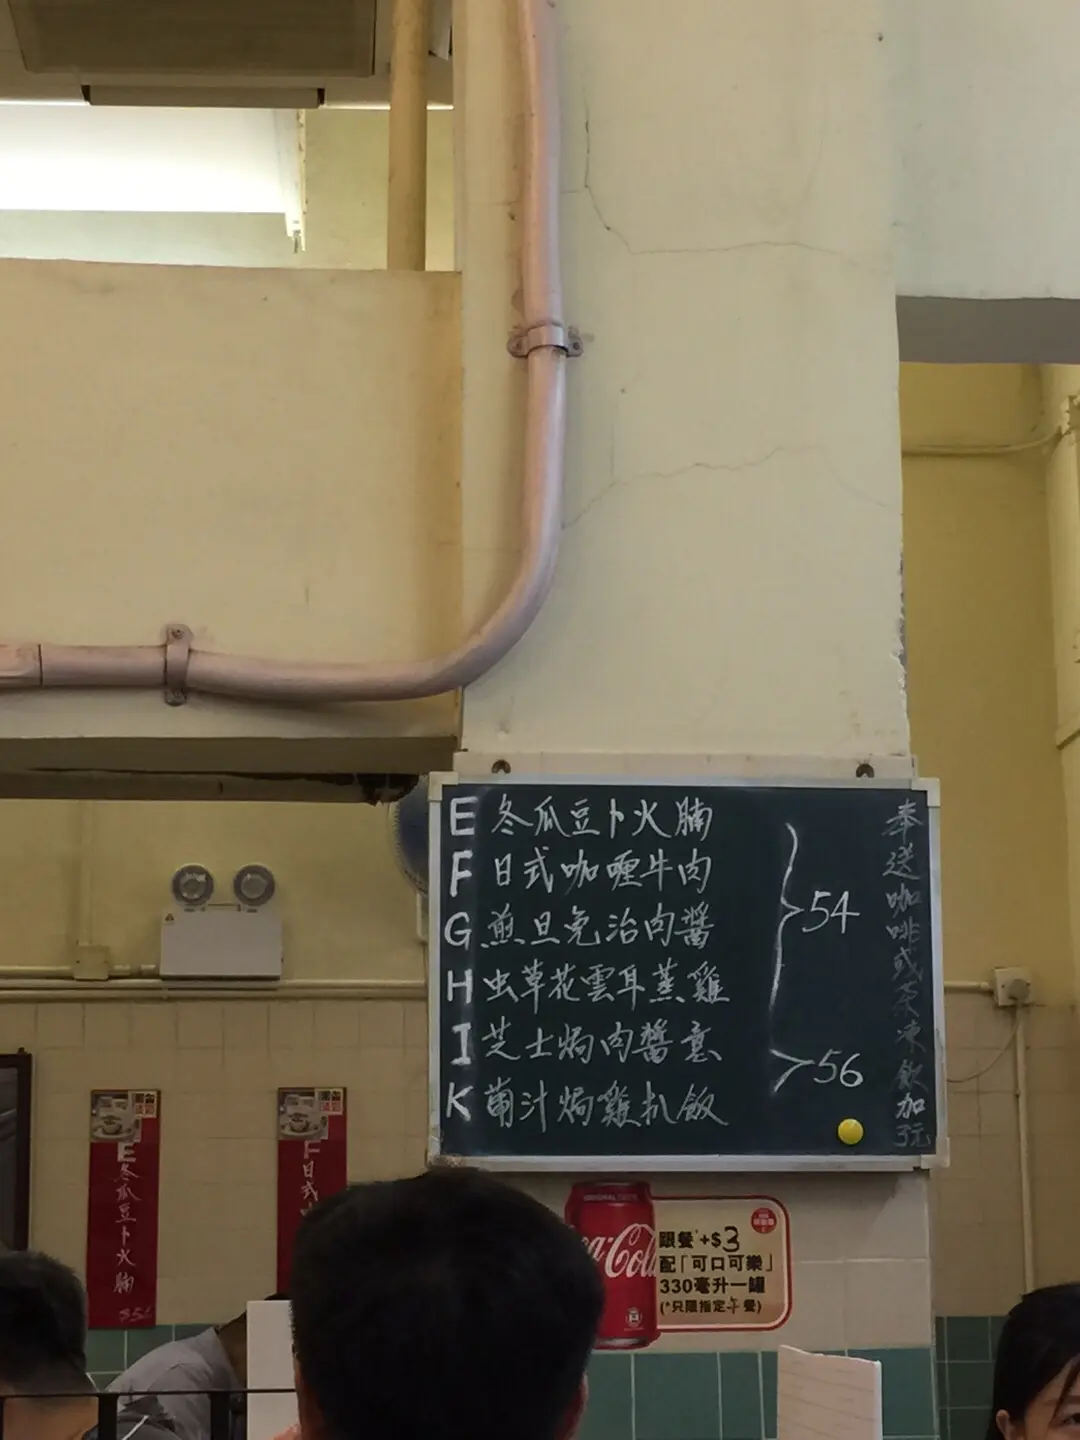 E 冬瓜豆卜火腩
F 日式咖喱牛肉
G 煎旦免治肉醬
H 虫草花雲耳蒸雞
I 芝士焗肉醬意
K 葡汁焗雞扒飯
54
56
奉送咖啡或茶凍飲加3元
E冬瓜豆卜火腩
F日式
ORIGINAL TASTE
跟餐+$3
配「可口可樂」
330毫升一罐
(*只限指定午餐)